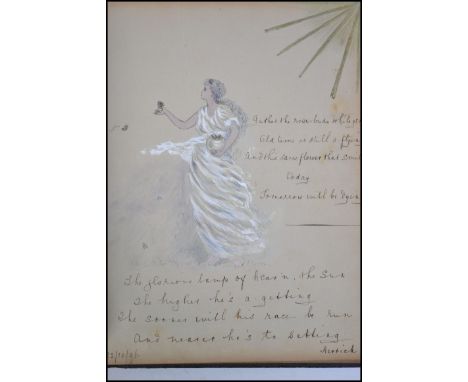 Gather the rose buds while ye
Old time is still a flying
And the same flower that smiles
today
Tomorrow will be dying
The glorious lamp of heav'n, the sun
The higher he's a getting
The sooner will his race be run
And nearer he's to setting
Herrick